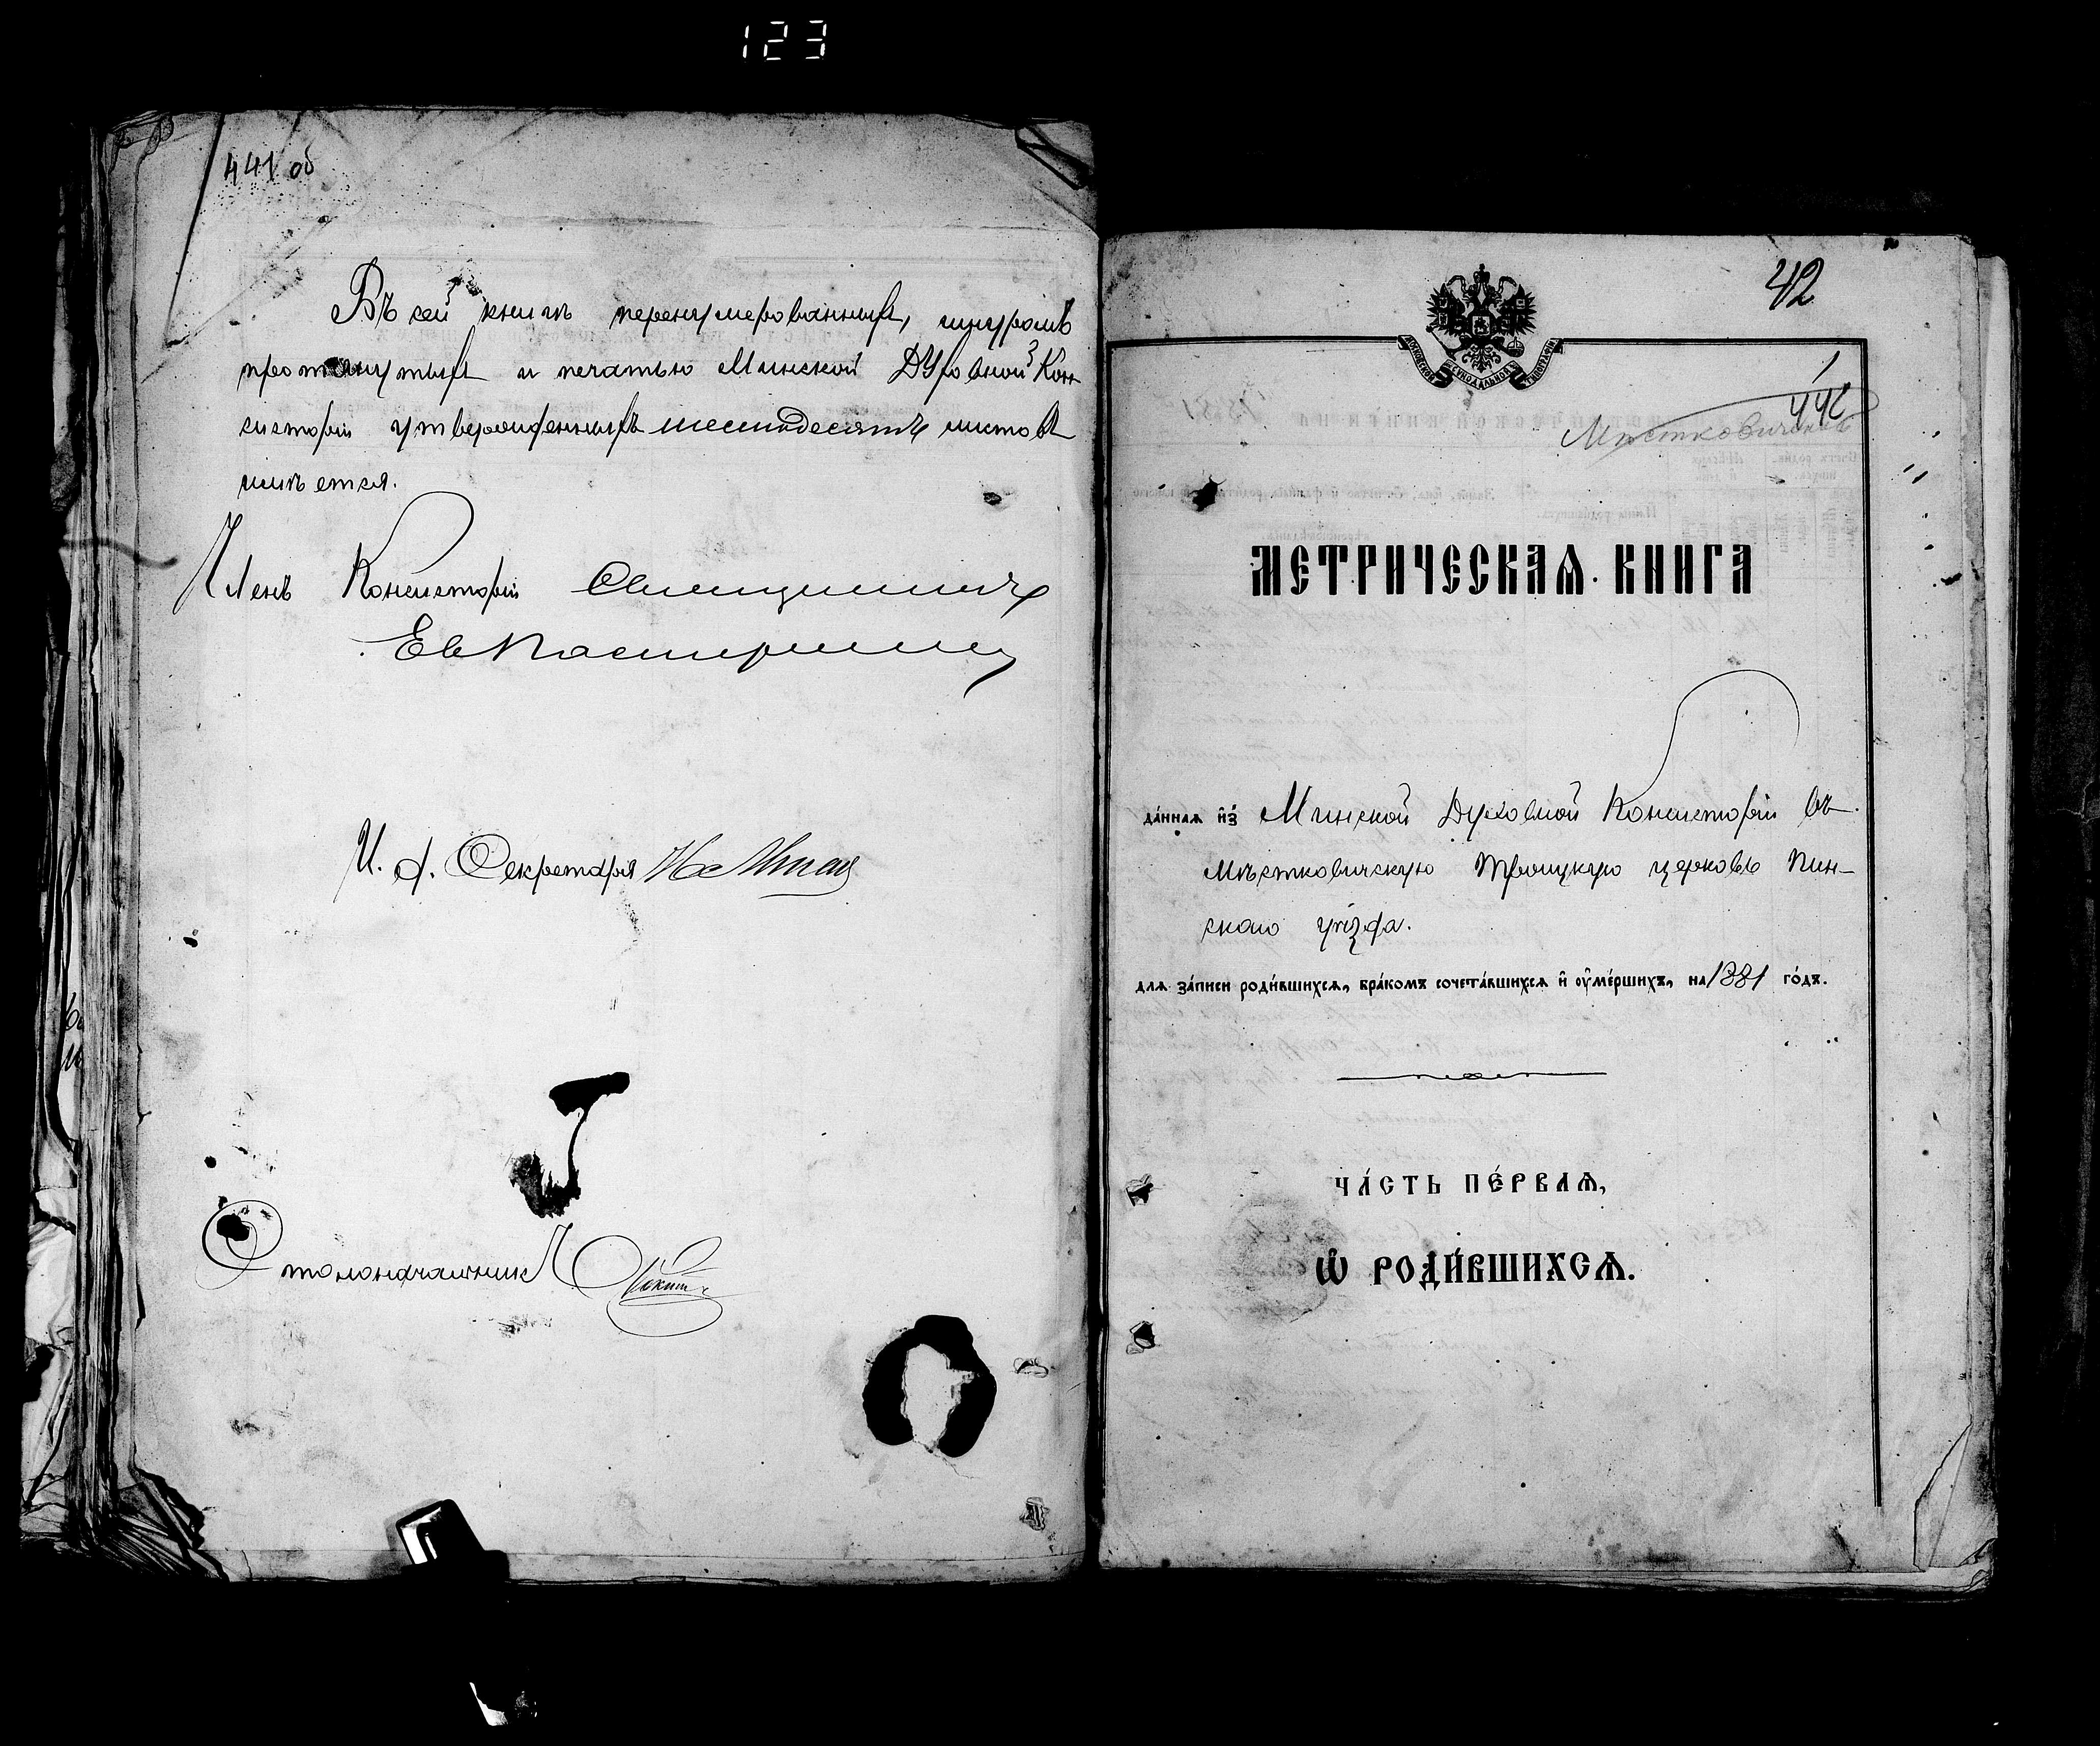 123
441 об
Въ сей книгѣ перенумерованныхъ, шнуромъ
протянутыхъ и печатью Минской Духовной Кон-
систоріи утвержденныхъ шестьдесятъ листовъ
имѣется.
Членъ Консисторіи Священникъ
И. д. Секретаря
Столоначальникъ
42
МОСКОВСКОЙ СѴНОДАЛЬНОЙ ТИПОГРАФІИ
1
442
МЕТРИЧЕСКАѦ КНИГА
да́ннаѧ и҆з̾ Минской Духовной Консисторіи въ
Мѣстковичскую Троицкую церковь Пин-
скаго уѣзда.
длѧ за́писи роди́вшихсѧ, бра́комъ сочета́вшихсѧ и҆ оу҆ме́ршихъ, на 1881 го́дъ.
ЧА́СТЬ ПЕ́РВАѦ,
Ѡ҆ РОДИ́ВШИХСѦ.